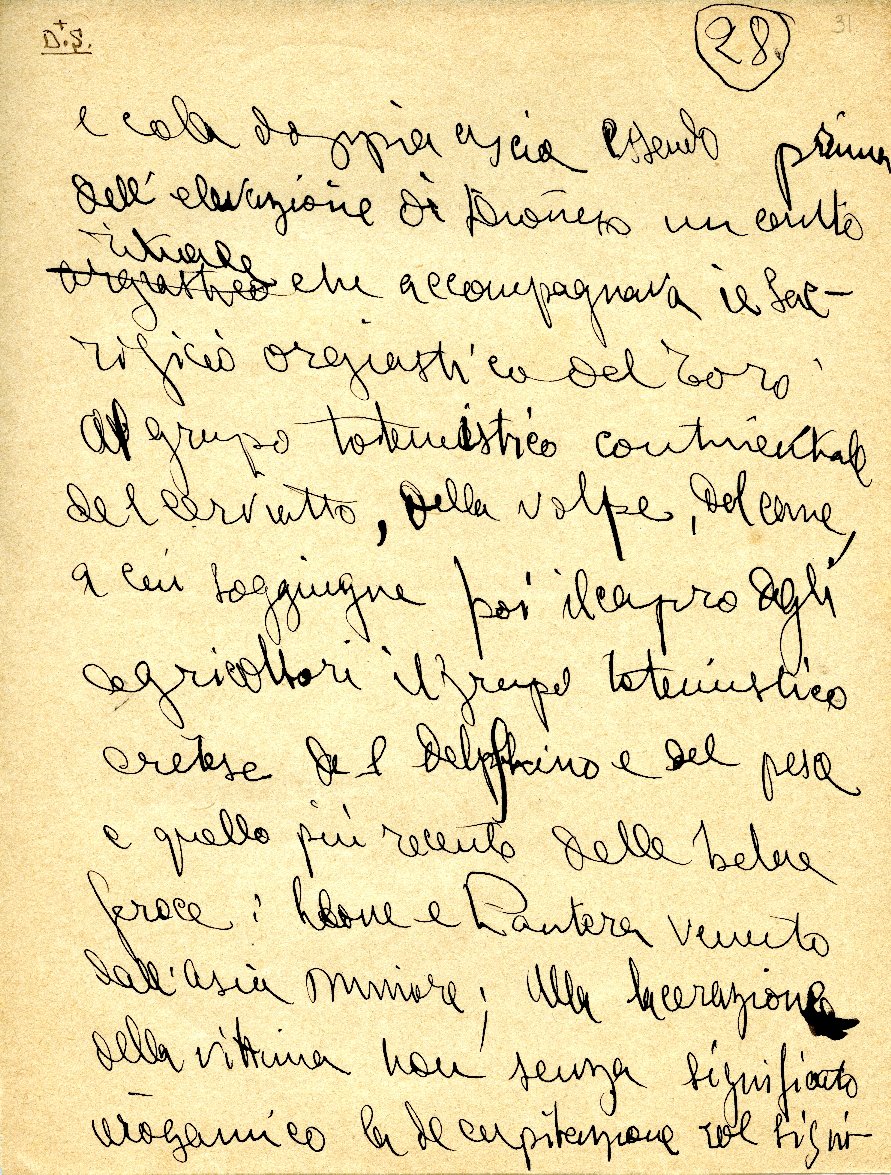 D.S.
28
31
e cola doppia ascia essendo prima
dell'elevazione di Dioniso un canto
rituale
orgiastico che accompagnava il sac-
rificio orgiastico del toro
Al grupo totemistico continentale
del cerviatto, della volpe, del cane,
a cui soggiugne poi il capro degli
agricoltori il grupo totemistico
cretese del delphino e del pesce
e quello più recente delle belve
feroce: leone e Pantera venuto
dall'Asia minore; Alla lacerazione
della vittima non senza significato
ierogamico la decapitazione col signi-